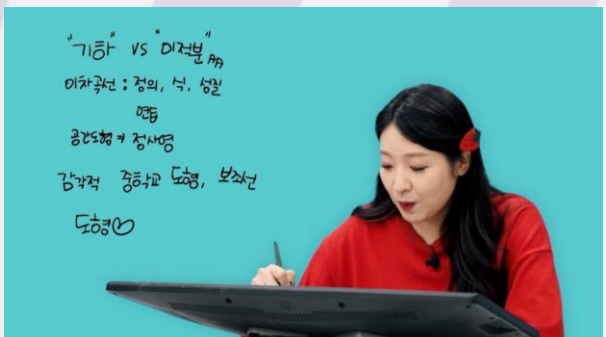 "기하" vs "미적분"
이차곡선 : 정의, 식, 성질
연습
공간도형 정사영
감각적 중학교 도형, 보조선
도형♡